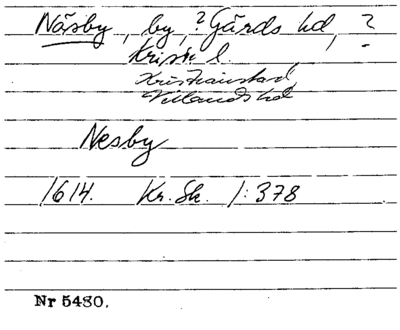 Näsby, by, ? Gärds hd, ?
Krist. l.
Kristianstad,
Villands hd
Nesby
1614. Kr. Sk. 1:378
Nr 5480.